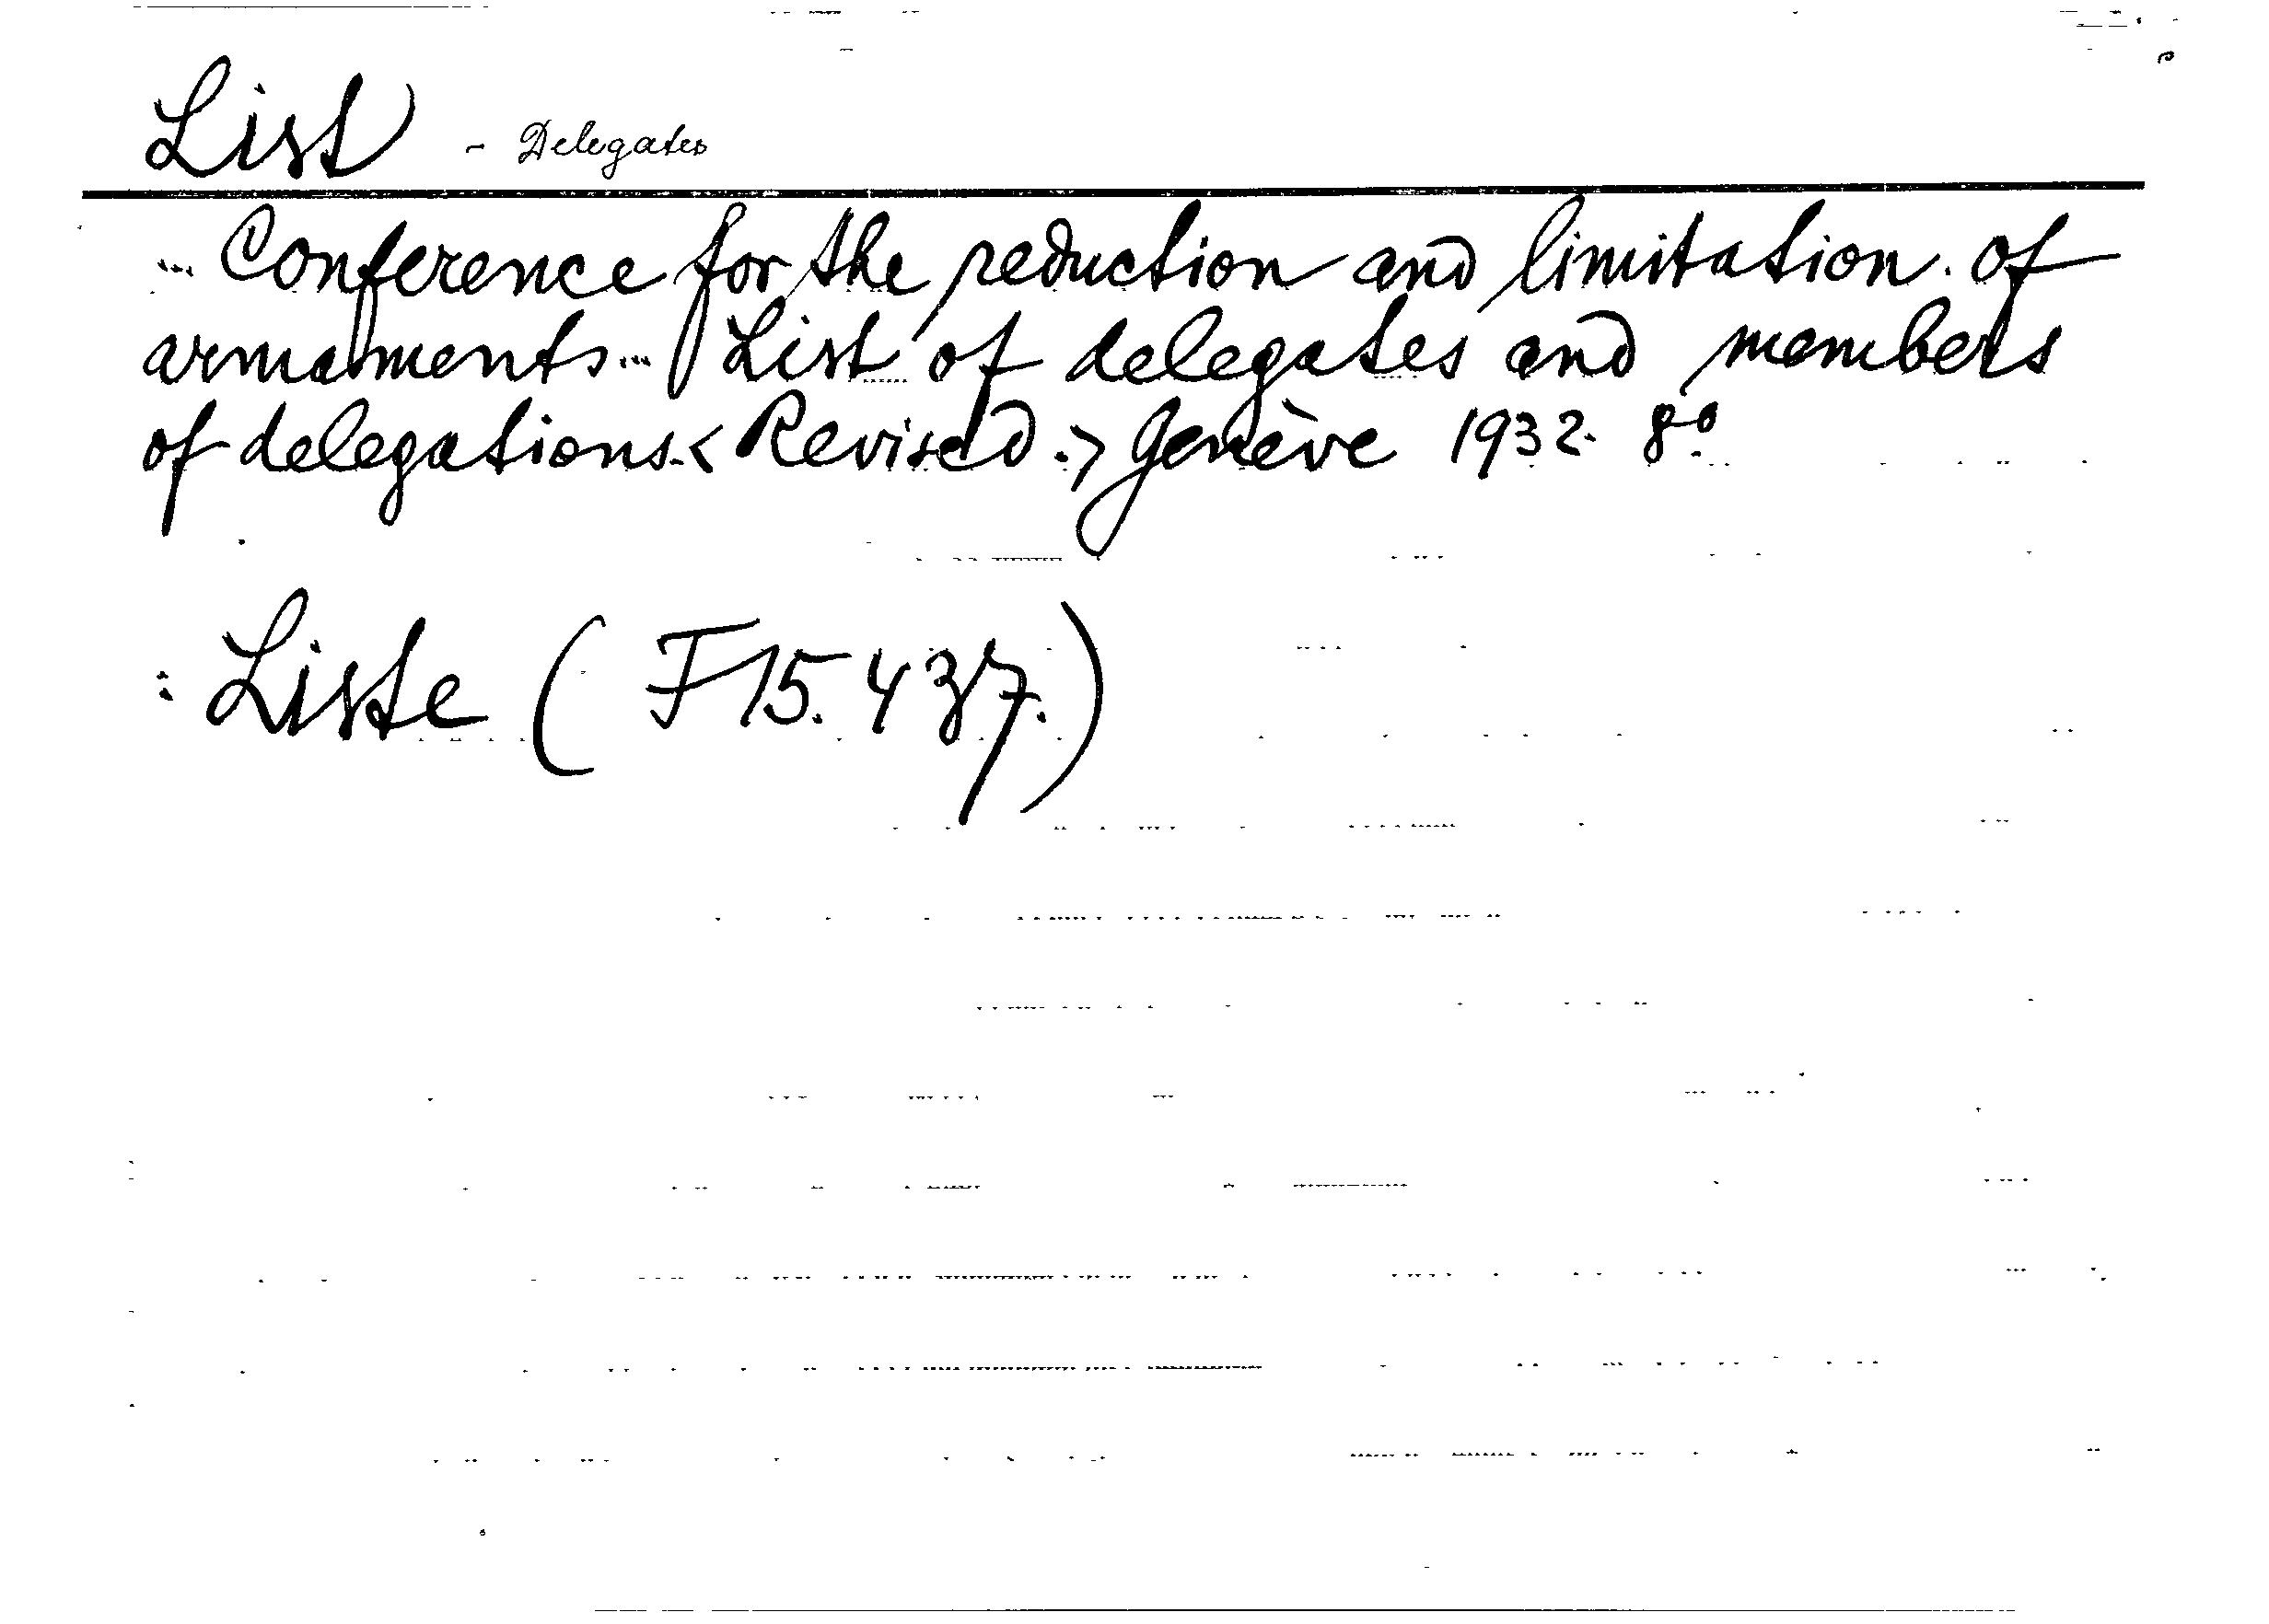 List - Delegates
... Conference for the reduction and limitation of
armaments... List of delegates and members
of delegations. < Revised. > Genève 1932. 8º.
: Liste ( F 15.437.)